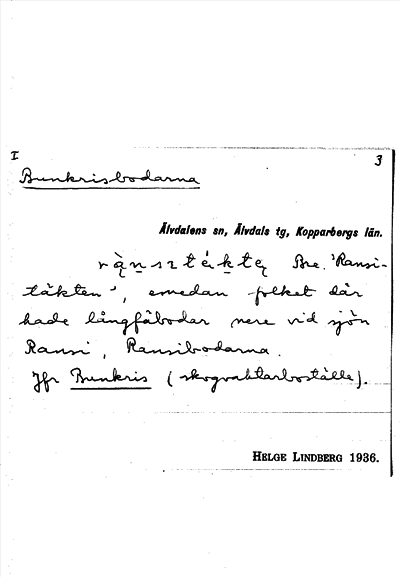 I 3
Bunkrisbodarna
Älvdalens sn, Älvdals tg, Kopparbergs län.
Bre. "Ransi-
täkten", emedan folket där
hade långfäbodar nere vid sjön
Ransi, Ransibodarna.
Jfr Bunkris (skogvaktarboställe).
HELGE LINDBERG 1936.